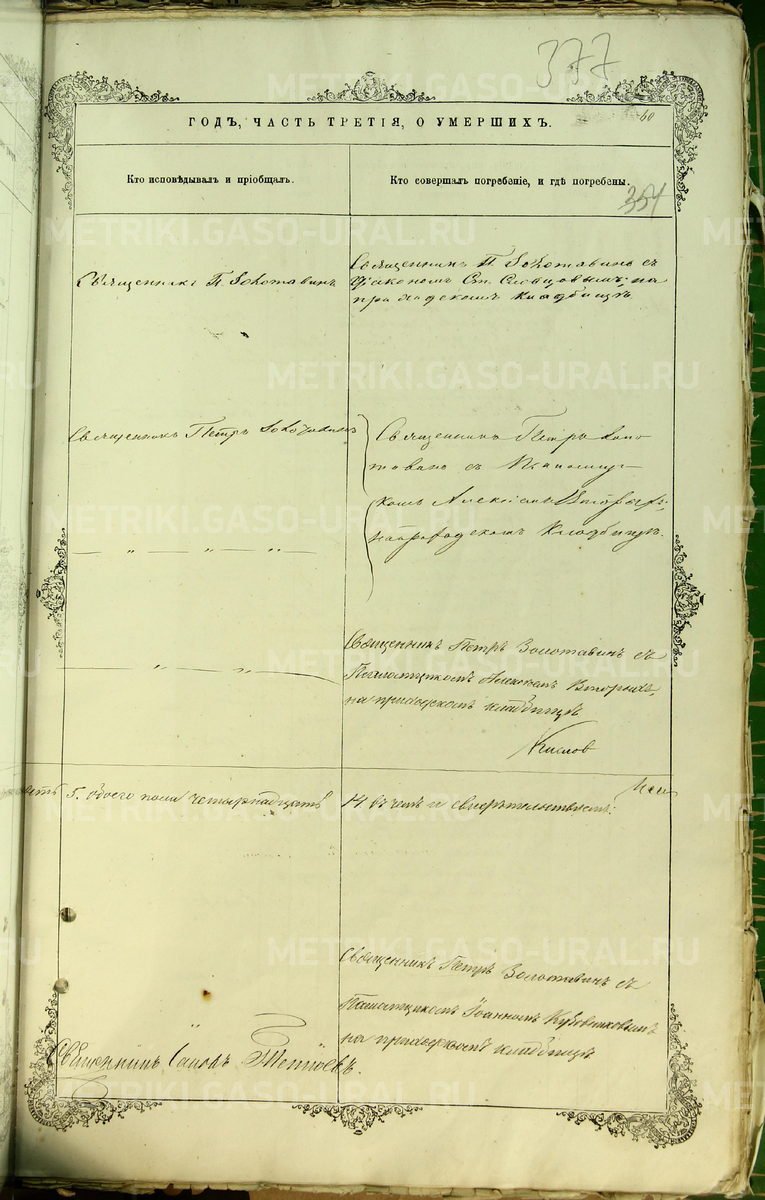 377
60
ГОДЪ, ЧАСТЬ ТРЕТІЯ, О УМЕРШИХЪ.
Кто исповѣдывалъ и пріобщалъ.
Кто совершалъ погребеніе, и гдѣ погребены.
354
Священникъ П. Золотавинъ
Священникъ П. Золотавинъ съ
Діакономъ Ст. Словцовымъ, на
приходскомъ кладбищѣ
Священникъ Петръ Золотавинъ
Священникъ Петръ Золо
тавинъ съ Псаломщи
комъ Алексіемъ Вторыхъ,
на приходскомъ кладбищѣ.
— „ — „ — „
— „ — „ —
Священникъ Петръ Золотавинъ съ
Псаломщикомъ Алексіемъ Вторыхъ,
на приходскомъ кладбищѣ
5. обоего пола четырнадцать
14 въ чемъ и свидѣтельствуемъ:
Священникъ Петръ Золотавинъ съ
Псаломщикомъ Іоанномъ
на приходскомъ кладбищѣ
„
Священникъ
METRIKI.GASO-URAL.RU